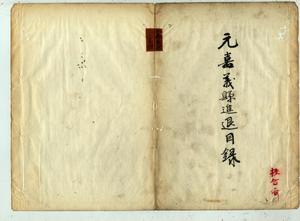 元嘉義縣進退目録